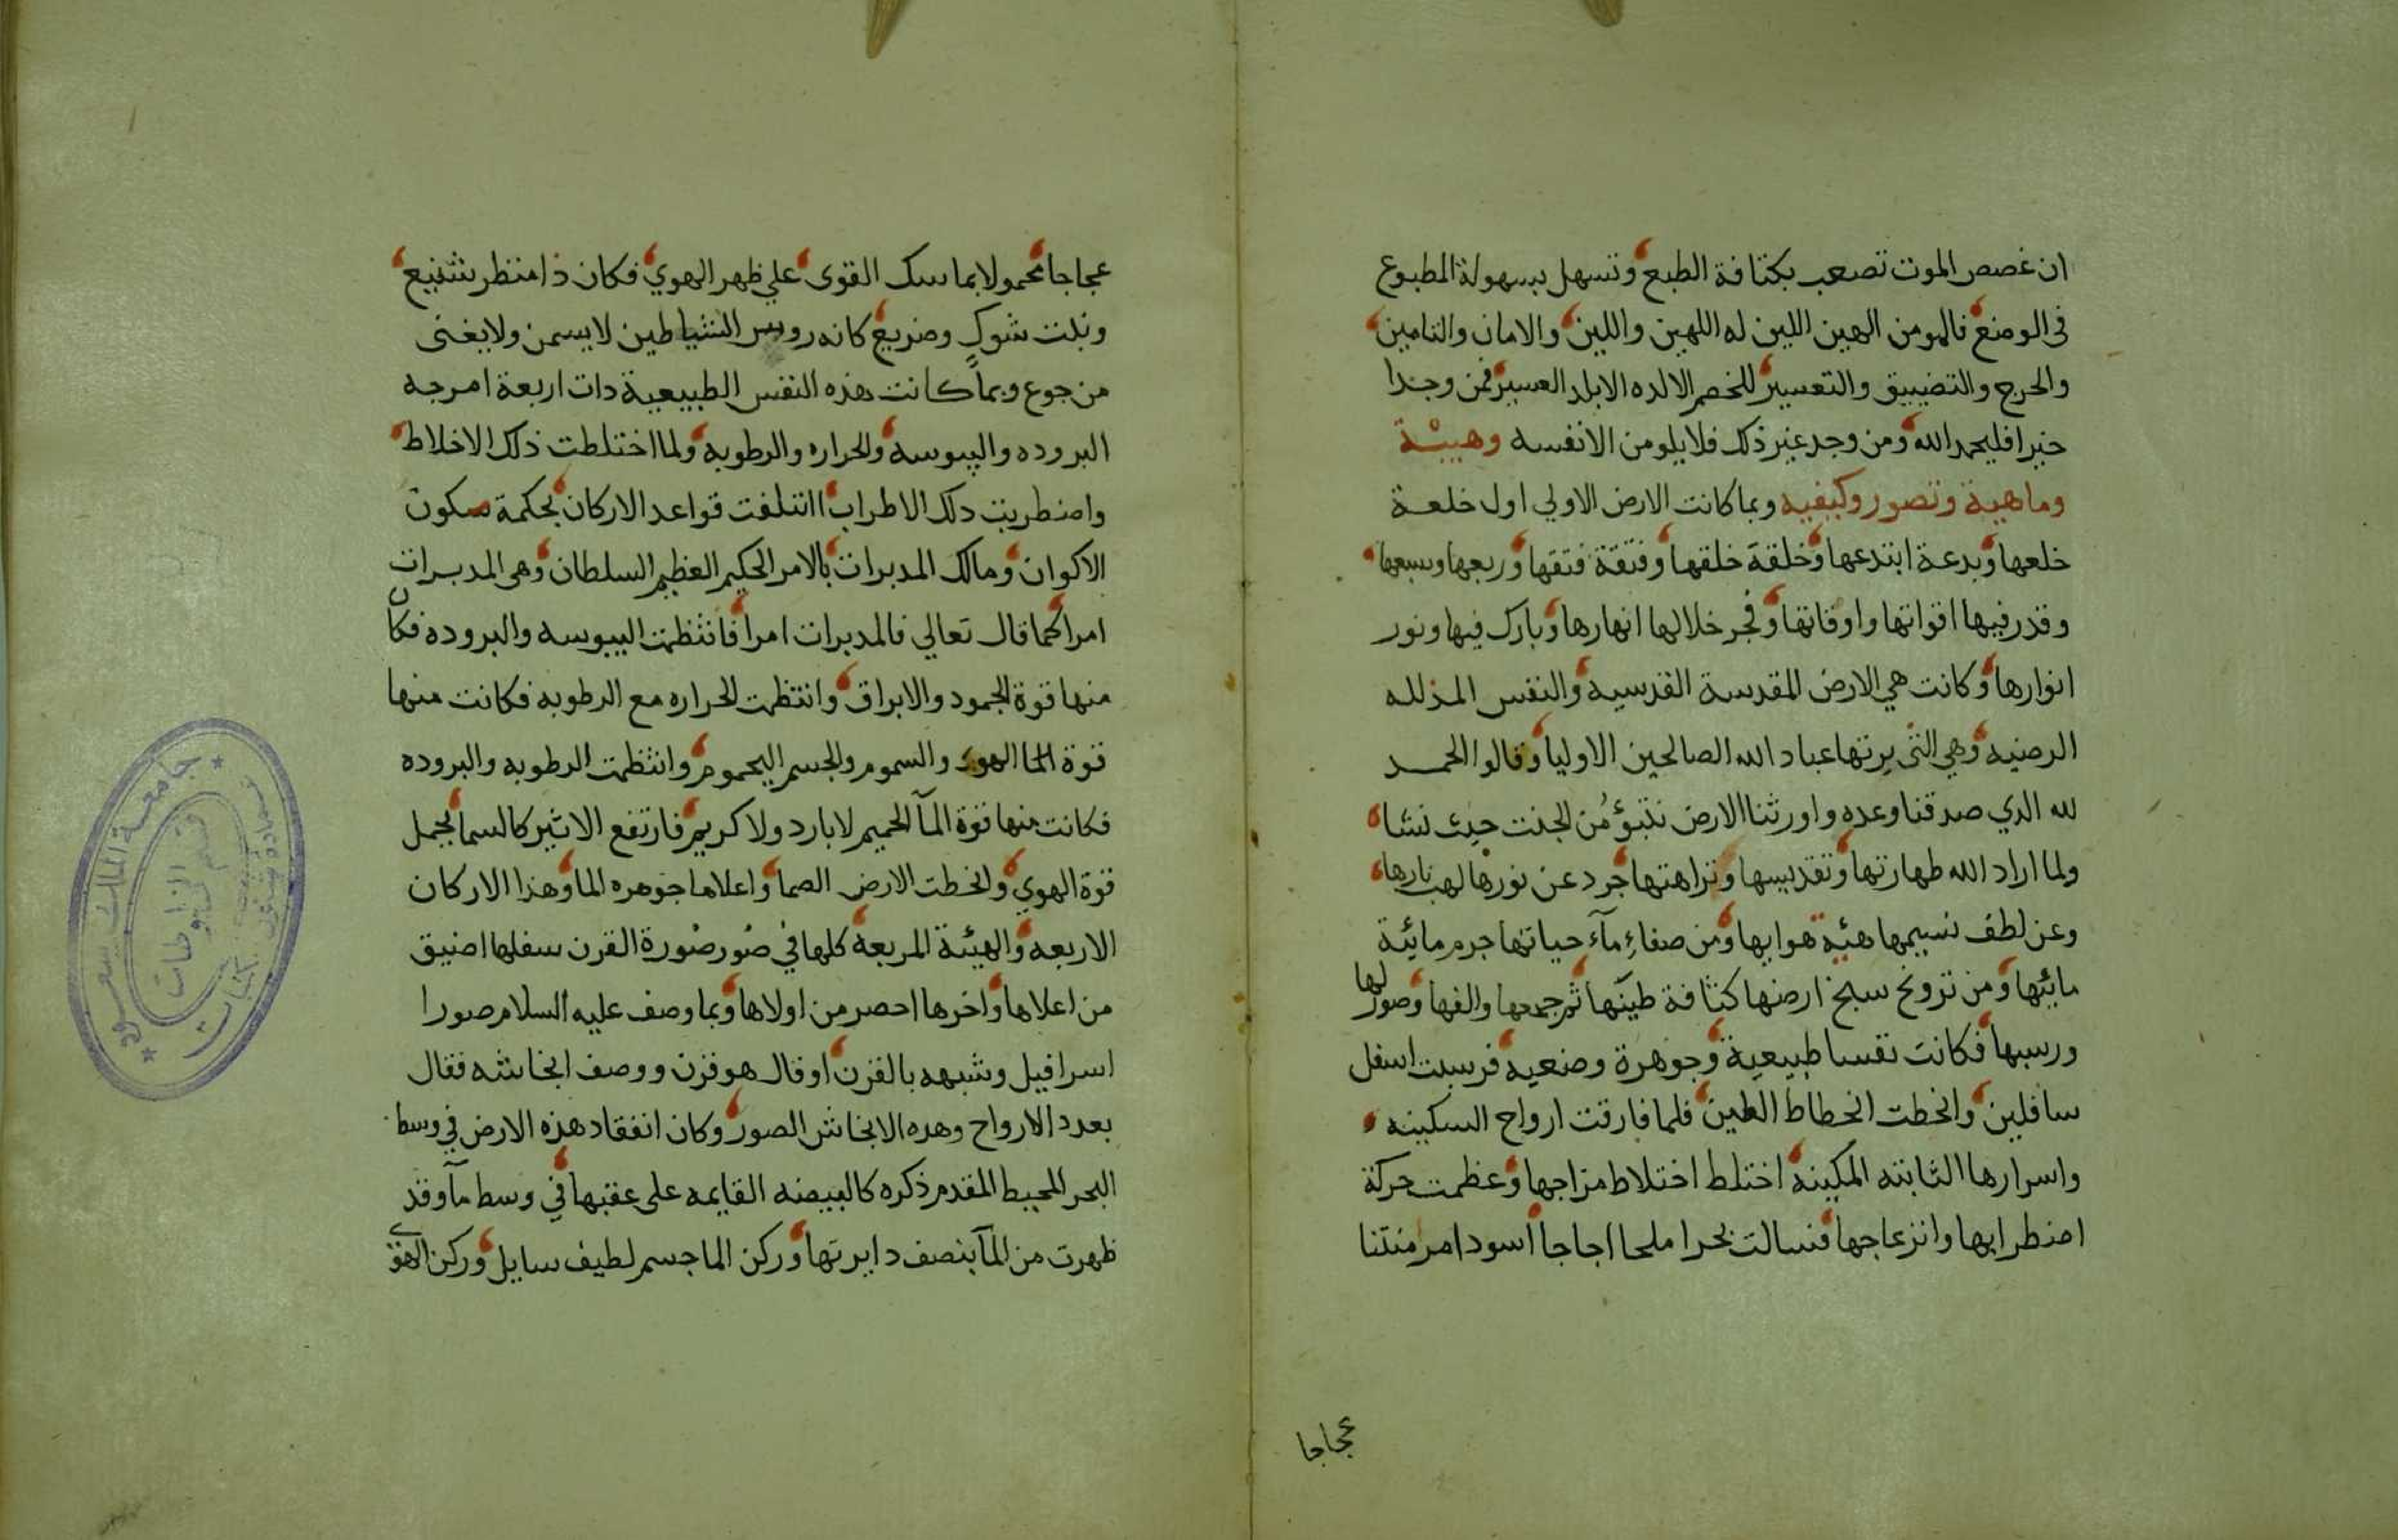 ان غصص الموت تصعب بكثافة الطبع وتسهل بسهولة المطبوع
في الوضع فالمومن الهين اللين له اللهين واللين والامان والتامين
والحرج والتضييق والتعسير للخصم الالده الابلد العسير فمن وجدا
خيرا فليحمد الله ومن وجد غير ذلك فلا يلومن الا نفسه وهيئة
وماهية وتصور وكيفيه وبما كانت الارض الاولي اول خلعة
خلعها وبدعة ابتدعها وخلقة خلقها وفتقة فتقها وربعها وسبعها
وقدر فيها اقواتها واوقاتها وفجر خلالها انهارها وبارك فيها ونور
انوارها وكانت هي الارض المقدسة القدسيه والنفس المذلله
الرضيه وهي التي يرثها عباد الله الصالحين الاوليا وقالوا الحمد
لله الدي صدقنا وعده واورثنا الارض نتبؤ من الجنت حيث نشا
ولما اراد الله طهارتها وتقديسها ونزاهتها جرد عن نورها لهب نارها
وعن لطف نسيمها هيئة هوايها ومن صفاء مآء حياتها جرم مائية
مائيها ومن تزونخ سبخ ارضها كثافة طينها ثم جمعها والفها وصور لها
ورسبها فكانت نفسا طبيعية وجوهرة وضعيه فرسبت اسفل
سافلين وانحطت انحطاط الطين فلما فارقت ارواح السكينه
واسرارها الثابته المكينه اختلط اختلاط مزاجها وعظمت حركة
اضطرابها وانزعاجها فسالت بحرا ملحا اجاجا اسودا مرمنتنا
عجاجا
عجاجا محمولا بماسك القوى علي ظهر الهوي فكان ذا منظر شنيع
ونبت شوك وضريع كانه روس الشياطين لا يسمن ولا يغنى
من جوع وبما كانت هذه النفس الطبيعية دات اربعة امرجه
البروده واليبوسه والحراره والرطوبه ولما اختلطت ذلك الاخلاط
واضطربت دلك الاطراب ائتلفت قواعد الاركان بحكمة سكون
الاكوان ومالك المدبرات بالامر الحكيم العظيم السلطان وهي المدبرات
امرا كما قال تعالي فالمدبرات امرا فانتظمت اليبوسه والبروده فكان
منها قوة الجمود والابراق وانتظمت الحراره مع الرطوبه فكانت منها
قوة الما الهوء والسموم والجسم اليحموم وانتظمت الرطوبه والبروده
فكانت منها قوة المآ الحميم لا بارد ولا كريم فارتفع الاثير كالسما بحمل
قوة الهوي وانحطت الارض الصما واعلاها جوهره الما وهذا الاركان
الاربعه والهيئة المربعة كلها في صور صورة القرن سفلها اضيق
من اعلاها واخرها احصر من اولاها وبما وصف عليه السلام صورا
اسرافيل وشبهه بالقرن او قال هو قرن ووصف انخاشه فقال
بعدد الارواح وهده الانخاش الصور وكان انفقاد هذه الارض في وسط
البحر المحيط المقدم ذكره كالبيضه القايمه على عقبها في وسط مآ وقد
ظهرت من المآ بنصف دايرتها وركن الما جسم لطيف سايل وركن الهوي
جامعة الملك سعود
قسم المخطوطات